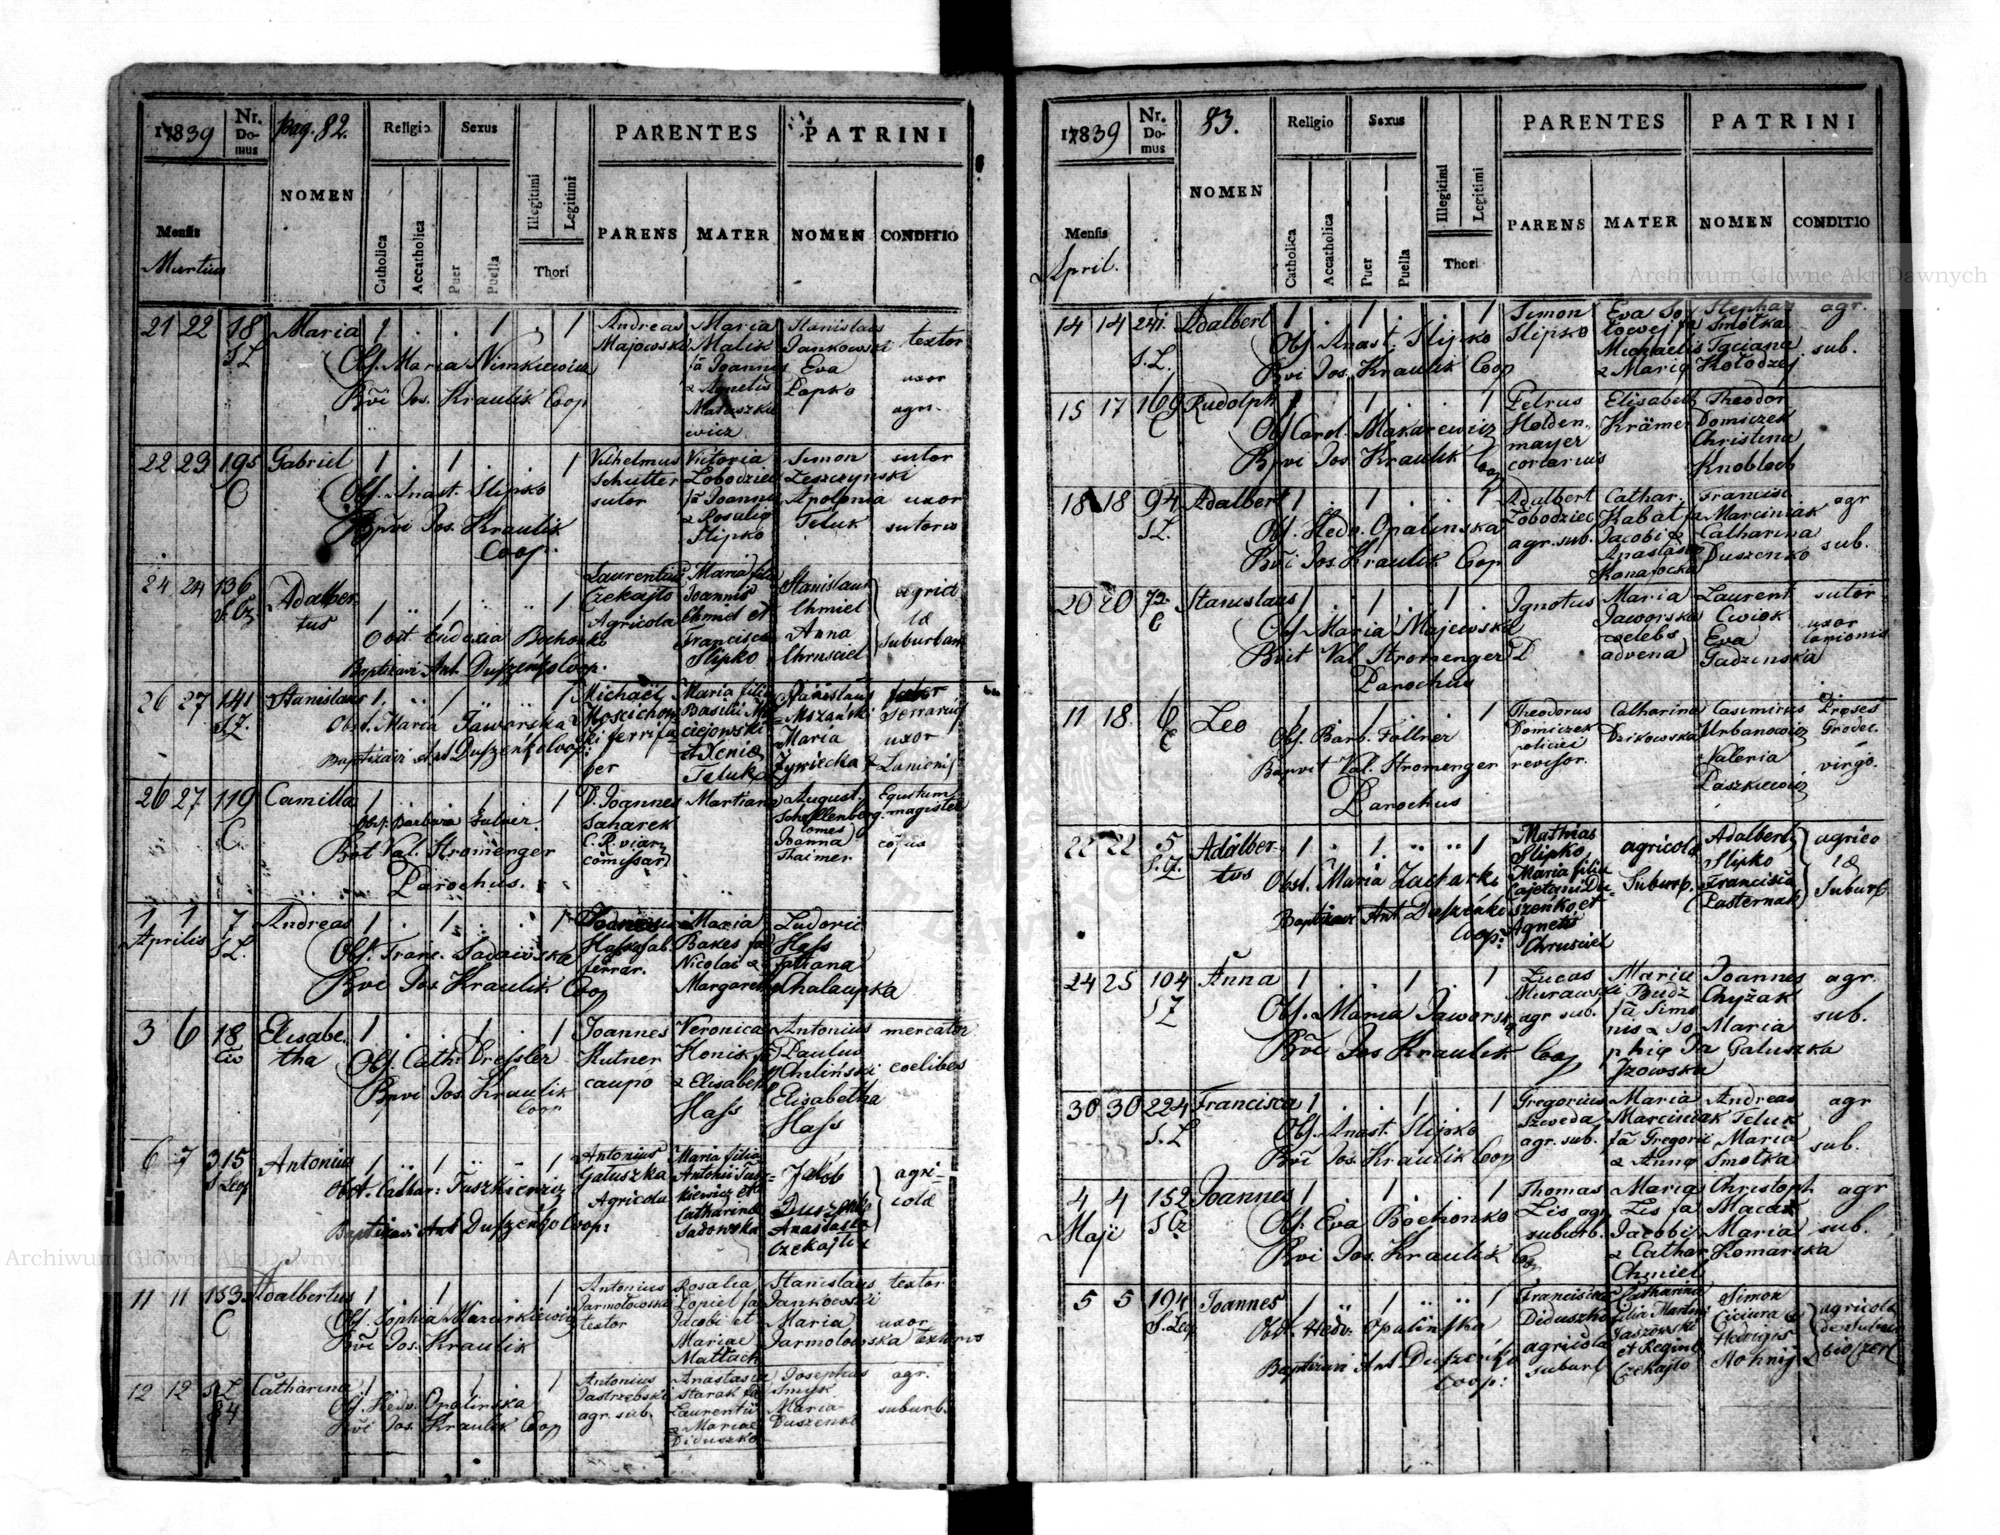 1839
Nr. Domus
pag. 82.
Religio
Sexus
PARENTES
PATRINI
Mensis
Martius
NOMEN
Catholica
Accatholica
Puer
Puella
Illegitimi
Legitimi
Thori
PARENS
MATER
NOMEN
CONDITIO
21 22 18 Maria 1 . . 1 , 1 Andreas Maria Stanislaus textor
S.L. Majowski Malik Jankowski
Obs. Maria Nimkiewicz fa Joannis Eva uxor
& Agnetis Papko
Bvi Jos. Kraulik Coop Matuszke agr.
wicz
22 23 195 Gabriel 1 . 1 . . 1 Vilhelmus Victoria Simon sutor
C Schutter Lobodziec Leszczynski
Obs. Anast. Slipko sutor fa Joannis Apolonia uxor
Bpvi Jos. Kraulik & Rosalia Teluk sutoris
Coop. Slipko
24 24 136 Adalber- 1 1 1 Laurentius Maria filia Stanislaus agrico
S.Cz. tus Czekajlo Joannis Chmiel lae
Agricola Chmiel et Anna suburban
Obst. Eudoxia Bochonko Francisca Chrusciel
Baptizavi Ant Duszeńko Coop. Slipko
26 27 141 Stanislaus 1 1 1 Michael Maria filia Stanislaus faber
S.Z. Basilii Mszański Serrarius
Obst. Maria Jaworska ciejowski Maria uxor
Baptizavi Ant Duszeńko Coop: et Xenia Zywiecka Lanionis
ber Teluk
26 27 119 Camilla 1 . . 1 . 1 D. Joannes Martiana August Equitum
C. Obs. Barbara Saharek Schellenberg magister
Bvt Val. Stromenger C.R. viar. Comes copus
Parochus. comissar. Joanna
Thaimer
1 1 7 Andreas 1 . 1 . . 1 Maria Ludovic
Aprilis S.L. Bakes fa Hass
Obs. Franc. Sadowska ferrar. Nicolai & Tatiana
Bvi Jos. Kraulik Coop Margareta Chalaupka
3 6 18 Elisabe 1 . . 1 . 1 Joannes Veronica Antonius mercator
Civ tha Kutner Honik fa Paulus
Obs. Cath. Dressler caupo Chilinski coelibes
Bpvi Jos. Kraulik & Elisabeth Elisabetha
Coop Hass Hass
6 7 315 Antonius 1 1 1 Antonius Maria filia Jakób agri-
S Leop Gatuszka Antonii Tusz= Duszenko colae
Obst. Cathar: Tuszkiewicz Agricola kiewicz et Anastasia
Baptizavi Ant Duszeńko Coop: Catharina Czekajlo
Sadowska
11 11 153 Adalbertus 1 . 1 . . 1 Antonius Rosalia Stanislaus textor
C Jarmolowski Popiel fa Jankowski
Obs. Sophia Mazurkiewicz textor Jacobi et Maria uxor
Bvi Jos. Kraulik Mariae Jarmolowska textoris
Mattach
12 12 S.L. Catharina 1 . . 1 . 1 Antonius Anastasia Josephus agr.
84 Jastrzebski Starak fa Smyk
Obs. Hedv. Opalinska agr. sub. Laurentii Maria suburb.
Bvi Jos. Kraulik Coop & Mariae Duszenko
Diduszko
1839
Nr. Domus
83.
Religio
Sexus
PARENTES
PATRINI
Mensis
April.
NOMEN
Catholica
Accatholica
Puer
Puella
Illegitimi
Legitimi
Thori
PARENS
MATER
NOMEN
CONDITIO
14 14 241. Adalbert 1 . 1 . . 1 Simon Eva So Stephan agr.
S.L. Slipko lowej fa Smolka
Obs. Anast. Slipko Michaelis Taciana sub.
Bvi Jos. Kraulik Coop & Maria Kolodzej
15 17 169 Rudolph 1 . 1 . . 1 Petrus Elisabeth Theodor
C Holden- Krämer Domiczek
Obs Carol. Makarewicz mayer Christina
Bpvi Jos. Kraulik Coop coriarius Knobloch
18 18 94 Adalbert 1 . 1 . . 1 Adalbert Cathar. Francisc. agr
S.L. Lobodziec Kabat fa Marciniak
Obs. Hedv. Opalinska agr. sub. Jacobi & Catharina sub.
Bvi Jos. Kraulik Coop Anastasia Duszenko
Konafocka
20 20 72 Stanislaus 1 . 1 . 1 . Ignotus Maria Laurent sutor
C Jaworska Cwiok
Obs. Maria Majewska coelebs Eva uxor
Bvit Val. Stromenger advena Gadzinska lanionis
Parochus
11 18. 6 Leo 1 . 1 . . 1 Theodorus Catharina Casimirus Praeses
C Domiczek Dzikowska Urbanowicz Grodec.
Obs. Barb. Follner policiei Valeria
Bapvit Val. Stromenger revisor. Paszkiewicz virgo.
Parochus
22 22 5 Adalber- 1 . 1 1 Mathias agricola Adalbert agrico
S.Z. tus Slipko Suburb. Slipko lae
Obst. Maria Zacharko Maria filia Francisca Suburb
Cajetani Du= Pasternak
Baptizavi Ant Duszeńko szeńko et
Coop: Agnetis
Chrusciel
24 25 104 Anna 1 . . 1 . 1 Lucas Maria Joannes agr.
S Z Murawski Budz Chyżak
Obs. Maria Jaworska agr sub. fa Simo Maria sub.
Bvi Jos Kraulik Coop nis & So Galuszka
phia Ja
rzowska
30 30 224 Francisca 1 . . 1 . 1 Gregorius Maria Andreas agr
S. L Szweda Marciniak Teluk
Obs. Anast. Slipko agr. sub. fa Gregorii Maria sub.
Bvi Jos. Kraulik Coop & Anna Smolka
4 4 152 Joannes 1 . 1 . . 1 Thomas Maria Christoph. agr
Maji S Cz Lis agr Lis fa Macax
Obs. Eva Bochonko suburb. Jacobi Maria sub.
Bvi Jos. Kraulik Coop & Cathar Komarska
Chmiel
5 5 194 Joannes 1 1 1 Franciscus Catharina Simon agricola
S.Leo. Diduszko filia Martini Ciciura & de Subur
Obst. Hedv: Opalinska agricola Jaszowski Hedvigis
Baptizavi Ant Duszeńko suburb et Regina
Coop: Czekajlo
Archiwum Główne Akt Dawnych
Archiwum Główne Akt Dawnych